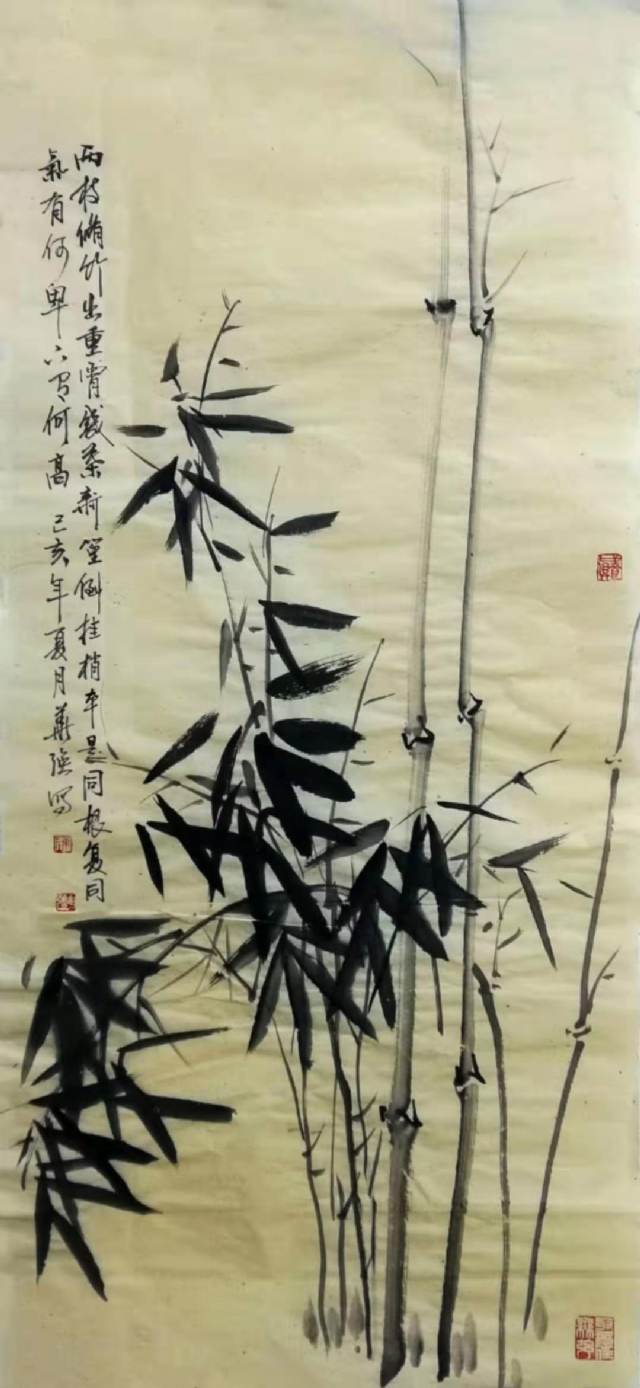 两枝脩竹出重霄幾葉新篁倒挂梢本是同根复同
氣有何卑下有何高 己亥年夏月華强写